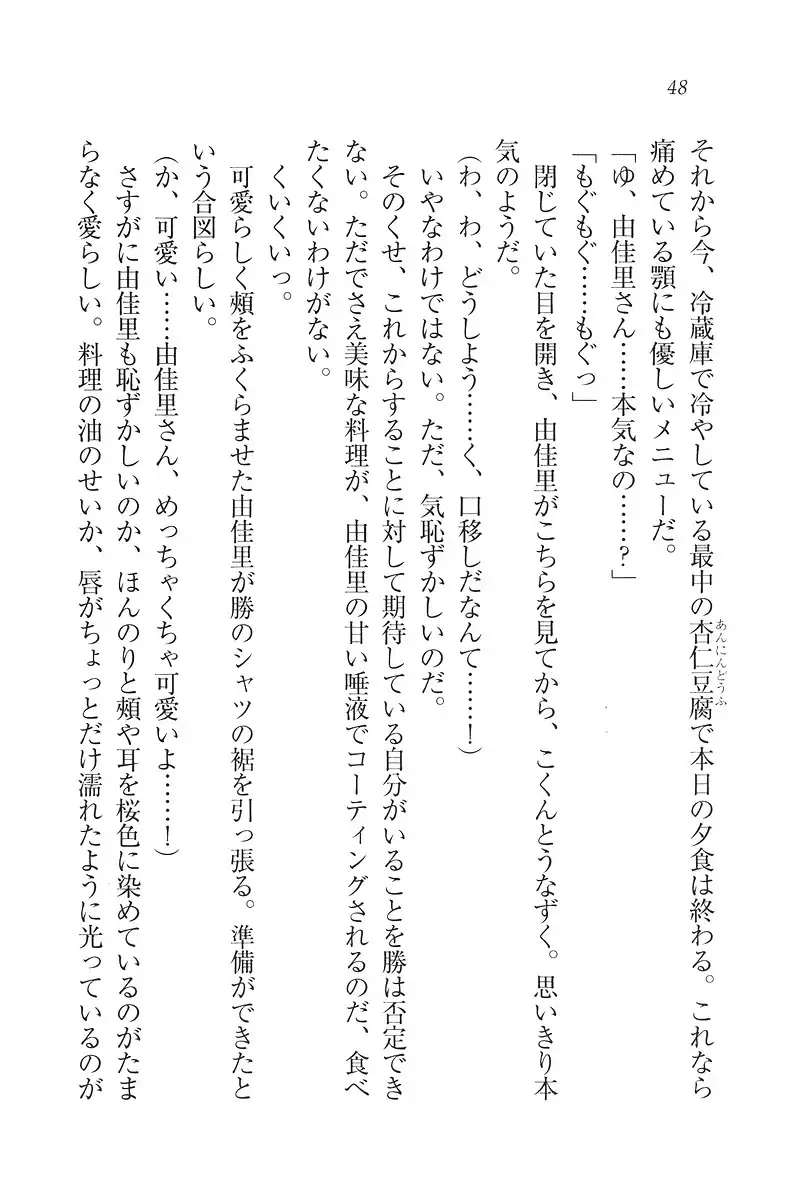 48
それから今、冷蔵庫で冷やしている最中の杏仁豆腐で本日の夕食は終わる。これなら
あんにんどうふ
痛めている顎にも優しいメニューだ。
「ゆ、由佳里さん……本気なの……?」
「もぐもぐ……もぐっ」
閉じていた目を開き、由佳里がこちらを見てから、こくんとうなずく。思いきり本
気のようだ。
(わ、わ、どうしよう……く、口移しだなんて……!)
いやなわけではない。ただ、気恥ずかしいのだ。
そのくせ、これからすることに対して期待している自分がいることを勝は否定でき
ない。ただでさえ美味な料理が、由佳里の甘い唾液でコーティングされるのだ、食べ
たくないわけがない。
くいくいっ。
可愛らしく頬をふくらませた由佳里が勝のシャツの裾を引っ張る。準備ができたと
いう合図らしい。
(か、可愛い……由佳里さん、めっちゃくちゃ可愛いよ……!)
さすがに由佳里も恥ずかしいのか、ほんのりと頬や耳を桜色に染めているのがたま
らなく愛らしい。料理の油のせいか、唇がちょっとだけ濡れたように光っているのが